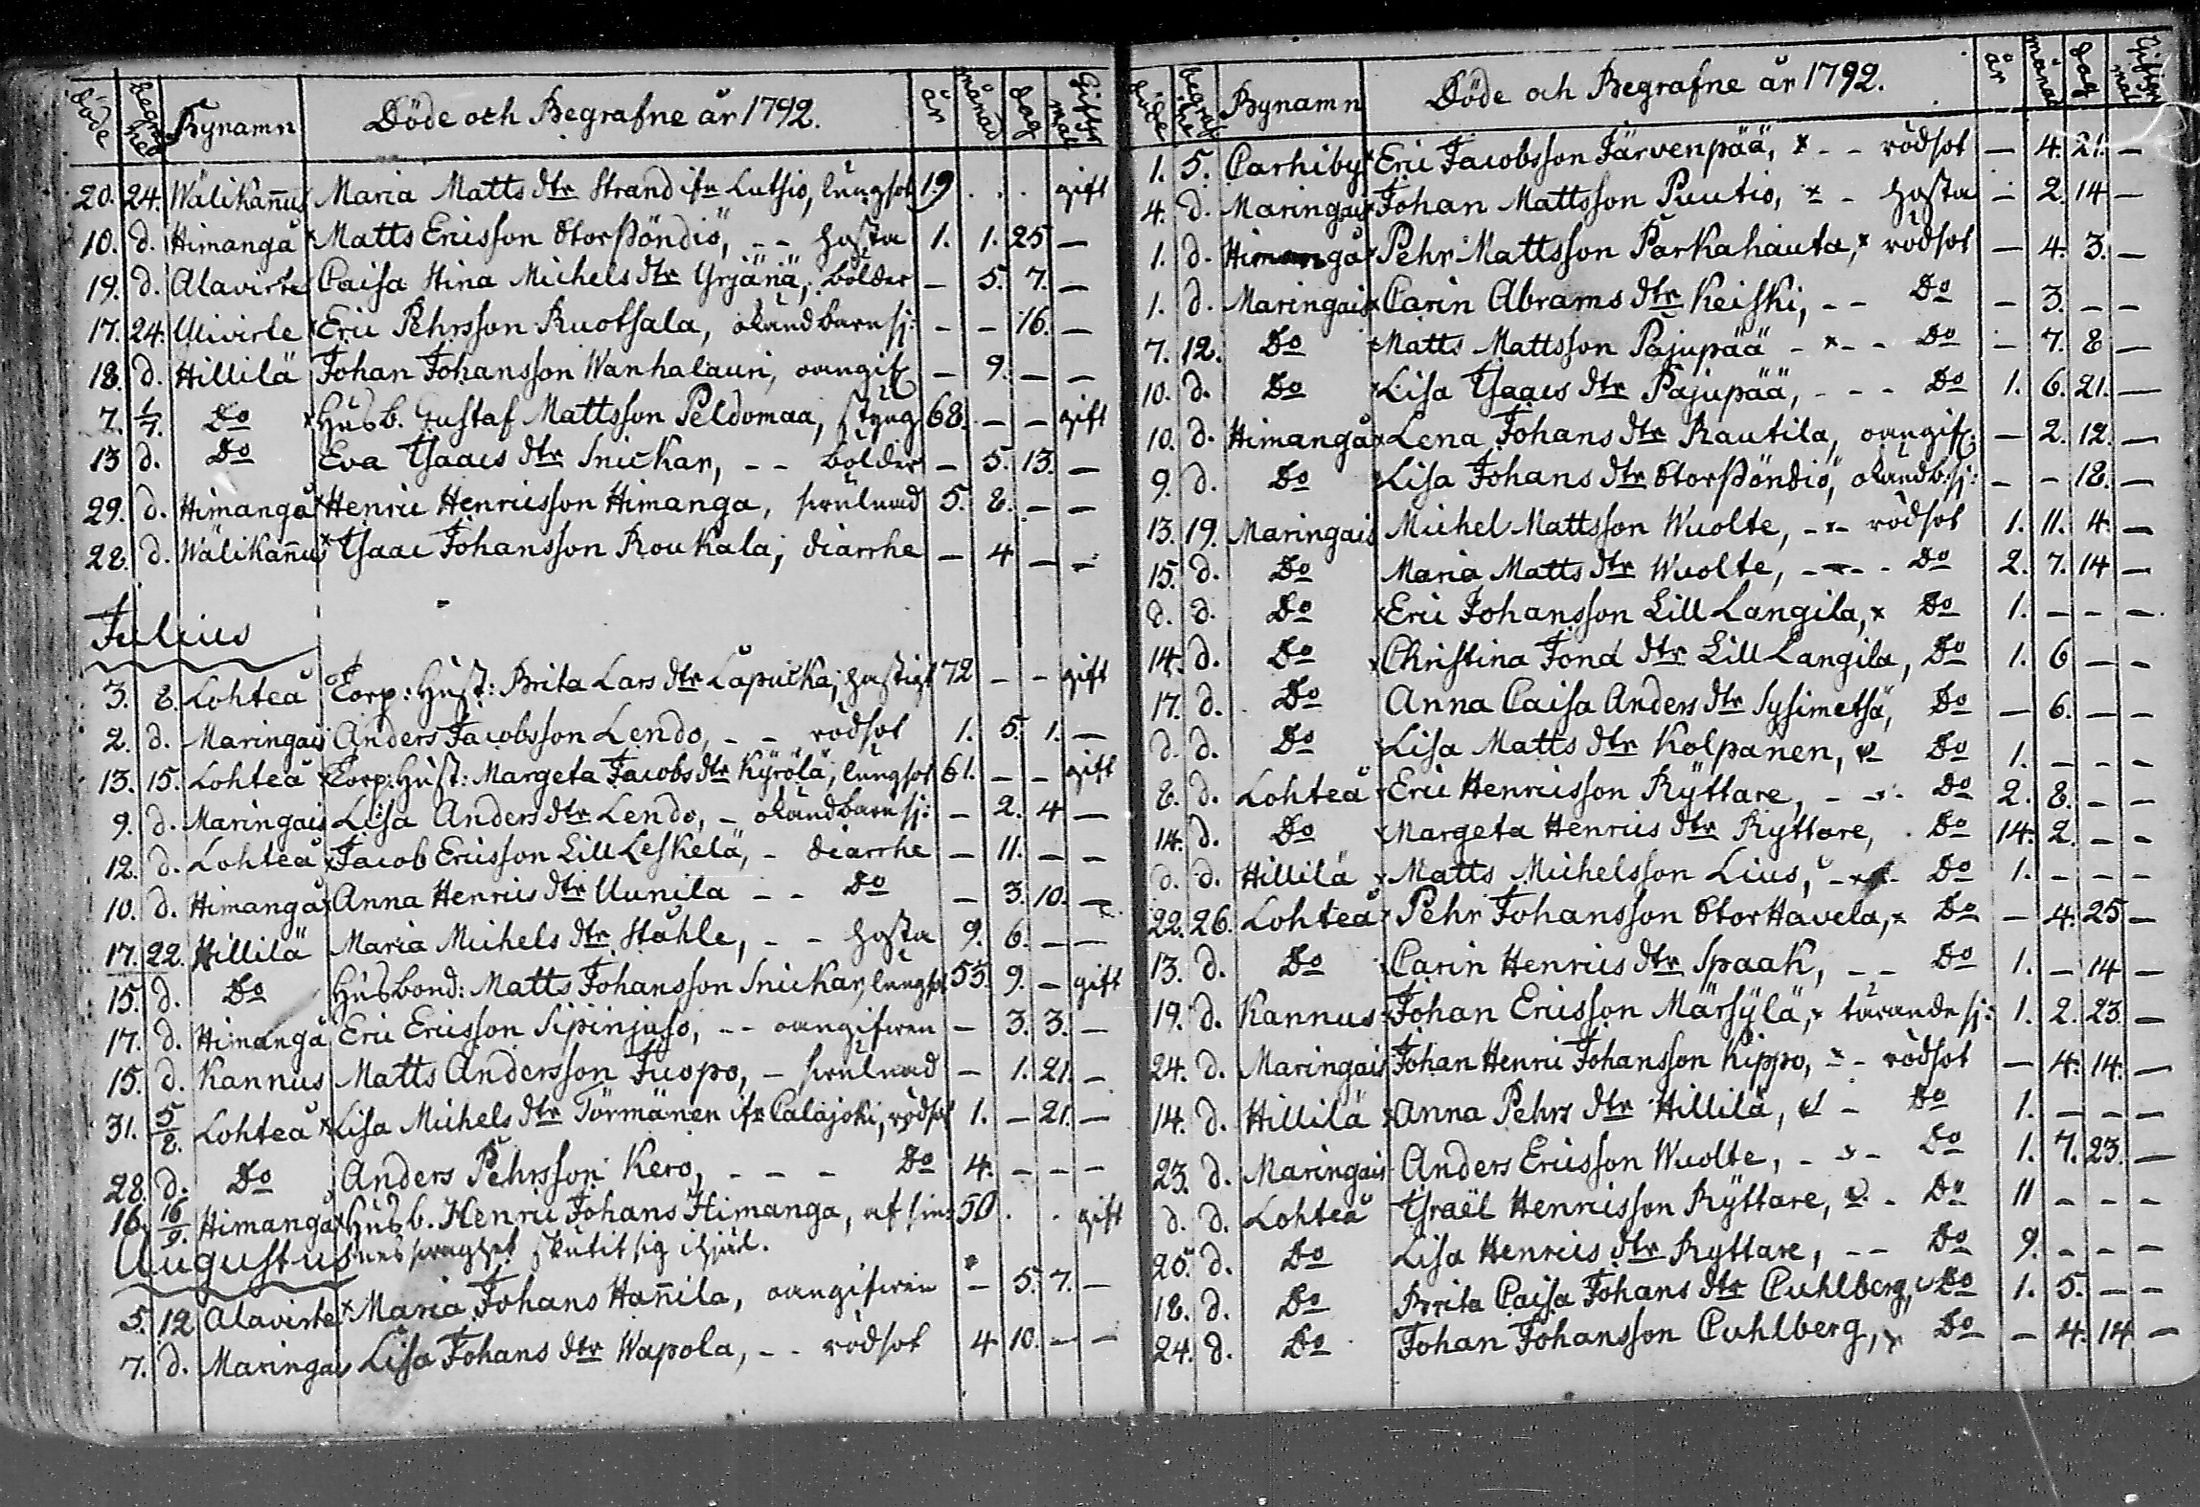 Döde Begraf ne Bynamn Döde och Begrafne år 1792. år månad dag Gifter mål
20. 24. Wälikañus Maria Matts dtr Strand ifr Luthio, lungsot 19 . . . gift
10. d. Himangå × Matts Ericsson StorPöndiö, - - hosta 1. 1. 25 —
19. d. Alavirte Caisa Stina Michels dtr Yrjänä, bölder — 5. 7. —
17. 24. Ylivirte × Eric Pehrsson Ruotsala, okänd barnsj: - — 16. —
18. d. Hillilä Johan Johansson Wanhalauri, oangif — 9. — —
7. 1/7. Do × Husb. Gustaf Mattsson Peldomaa, styng 68. — — gift
13 d. Do Eva Isaacs dtr Snickar, - - bölder — 5. 13. —
29. d. Himangå × Henric Henricsson Himanga, swulnad 5. 8. — —
28. d. Wälikañus × Isaac Johansson Roukala, diarrhe — 4 — —
Julius
3. 8. Lohteå Torp: Hust: Brita Lars dtr Lapucka, hastigt 72 - - gift
2. d. Maringais Anders Jacobsson Lendo, - - rödsot 1. 5. 1. —
13. 15. Lohteå × Torp: Hust: Margeta Jacobs dtr Kyrölä, lungsot 61. - - gift
9. d. Maringais Lisa Anders dtr Lendo, - okänd barnsj: — 2. 4 —
12. d. Lohteå × Jacob Ericsson LillLeskelä, - diarrhe — 11. — —
10. d. Himangå × Anna Henrics dtr Uunila - - Do — 3. 10. —
17. 22. Hillilä Maria Michels dtr Ståhle, - - hosta 9. 6. — —
15. d. Do Husbond: Matts Johansson Snickar, lungsot 55. 9. — gift
17. d. Himangå Eric Ericsson Sipinjuso, - - oangifwen — 3. 3. —
15. d. Kannus Matts Andersson Juopo, - swulnad — 1. 21. —
31. 5/8. Lohteå × Lisa Michels dtr Törmänen ifr Calajoki, rödsot 1. — 21. —
28. d. Do Anders Pehrsson Kero, - - - Do 4. - - -
16. 16/9. Himangå × Husb. Henric Johans Himanga, af sin- 50 . . gift
Augustus nes swaghet skutit sig ihjäl.
5. 12 Alavirte × Maria Johans Hañila, oangifwen — 5. 7. —
7. d. Maringais Lisa Johans dtr Wapola, - - rödsot 4 10. — —
Döde Begraf ne Bynamn Döde och Begrafne år 1792. år månad dag Gifter mål
1. 5. Carhiby × Eric Jacobsson Järvenpää, × - - rödsot — 4. 21. —
4. d. Maringais × Johan Mattsson Puutio, × - hosta — 2. 14 —
1. d. Himangå × Pehr Mattsson Parkahauta, × rödsot — 4. 3. —
1. d. Maringais × Carin Abrams dtr Keiski, - - Do — 3. — —
7. 12. Do × Matts Mattsson Pajupää - × - - Do — 7. 8 —
10. d. Do × Lisa Isaacs dtr Pajupää, - - - Do 1. 6. 21. —
10. d. Himangå × Lena Johans dtr Rautila, oangif — 2. 12. —
9. d. Do × Lisa Johans dtr StorPöndiö, okänd b:sj: - — 18. —
13. 19. Maringais Michel Mattsson Wuolte, - × - rödsot 1. 11. 4. —
15. d. Do Maria Matts dtr Wuolte, - × - - Do 2. 7. 14 —
d. d. Do × Eric Johansson LillLangila, × Do 1. — — —
14. d. Do × Christina Jond dtr LillLangila, Do 1. 6 — —
17. d. Do Anna Caisa Anders dtr Sysimetsä, Do — 6. — —
d. d. Do × Lisa Matts dtr Kolpanen, Do 1. - - -
8. d. Lohteå × Eric Henricsson Ryttare, - × - Do 2. 8. - -
14. d. Do × Margeta Henrics dtr Ryttare, - Do 14. 2. - -
d. d. Hillilä × Matts Michelsson Lius, - × - Do 1. - - -
22. 26. Lohteå × Pehr Johansson StorHavela, × Do — 4. 25 —
13. d. Do × Carin Henrics dtr Spaak, - - Do 1. - 14 —
19. d. Kannus × Johan Ericsson Märsylä, × tärande sj: 1. 2. 23. —
24. d. Maringais Johan Henric Johansson Kippo, × - rödsot — 4. 14. —
14. d. Hillilä × Anna Pehrs dtr Hillilä, - Do 1. — — —
23. d. Maringais Anders Ericsson Wuolte, - × - Do 1. 7. 23. —
d. d. Lohteå Israël Henricsson Ryttare, - Do 11 — — —
25. d. Do Lisa Henrics dtr Ryttare, - - Do 9. - - -
18. d. Do Brita Caisa Johans dtr Cuhlberg, Do 1. 5. — —
24. d. Do Johan Johansson Cuhlberg, × Do — 4. 14. —